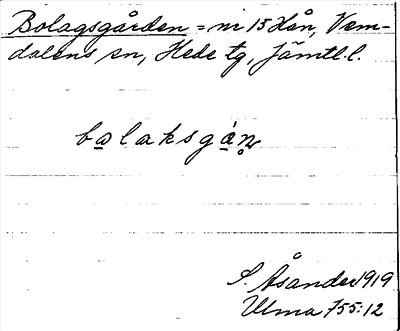 Bolagsgården = nr 15 Xån, Vem-
dalens sn, Hede tg, Jämtl. l.
bo̲laksgå̲n̥
S. Åsander 1919
Ulma 755:12